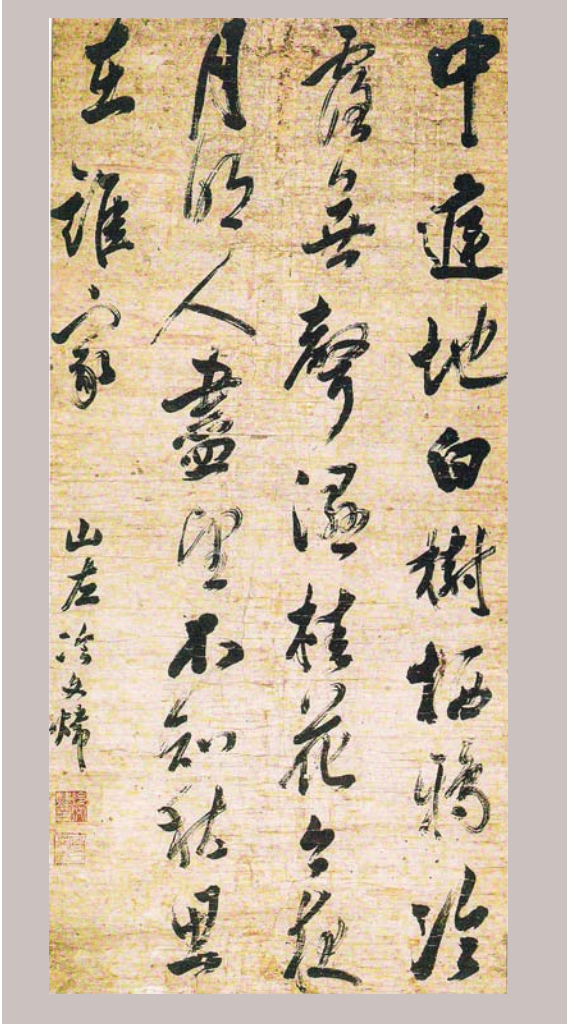 中庭地白樹栖鴉冷
露無聲濕桂花今夜
月明人盡望不知秋思
在誰家
山左冷文煒